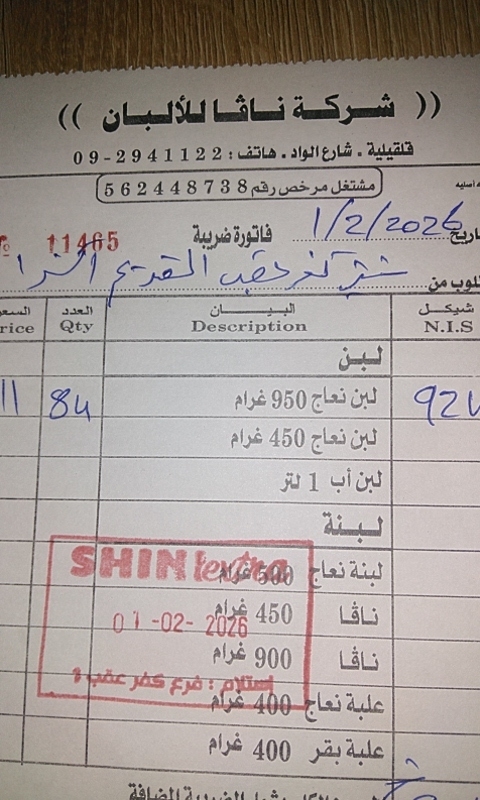 (( شركة ناڤا للألبان ))
قلقيلية . شارع الواد . هاتف : 2941122-09
مشتغل مرخص رقم 562448738
11465 فاتورة ضريبة 1/2/2026
كفر عقب القديم
السعر العدد البيــــان شيكل
Price Qty Description N.I.S
لبن
11 84 لبن نعاج 950 غرام 924
لبن نعاج 450 غرام
لبن أب 1 لتر
لبنة
لبنة نعاج 500 غرام
ناڤا 450 غرام
ناڤا 900 غرام
علبة نعاج 400 غرام
علبة بقر 400 غرام
SHINI extra
01-02-2026
استلام : فرع كفر عقب 1